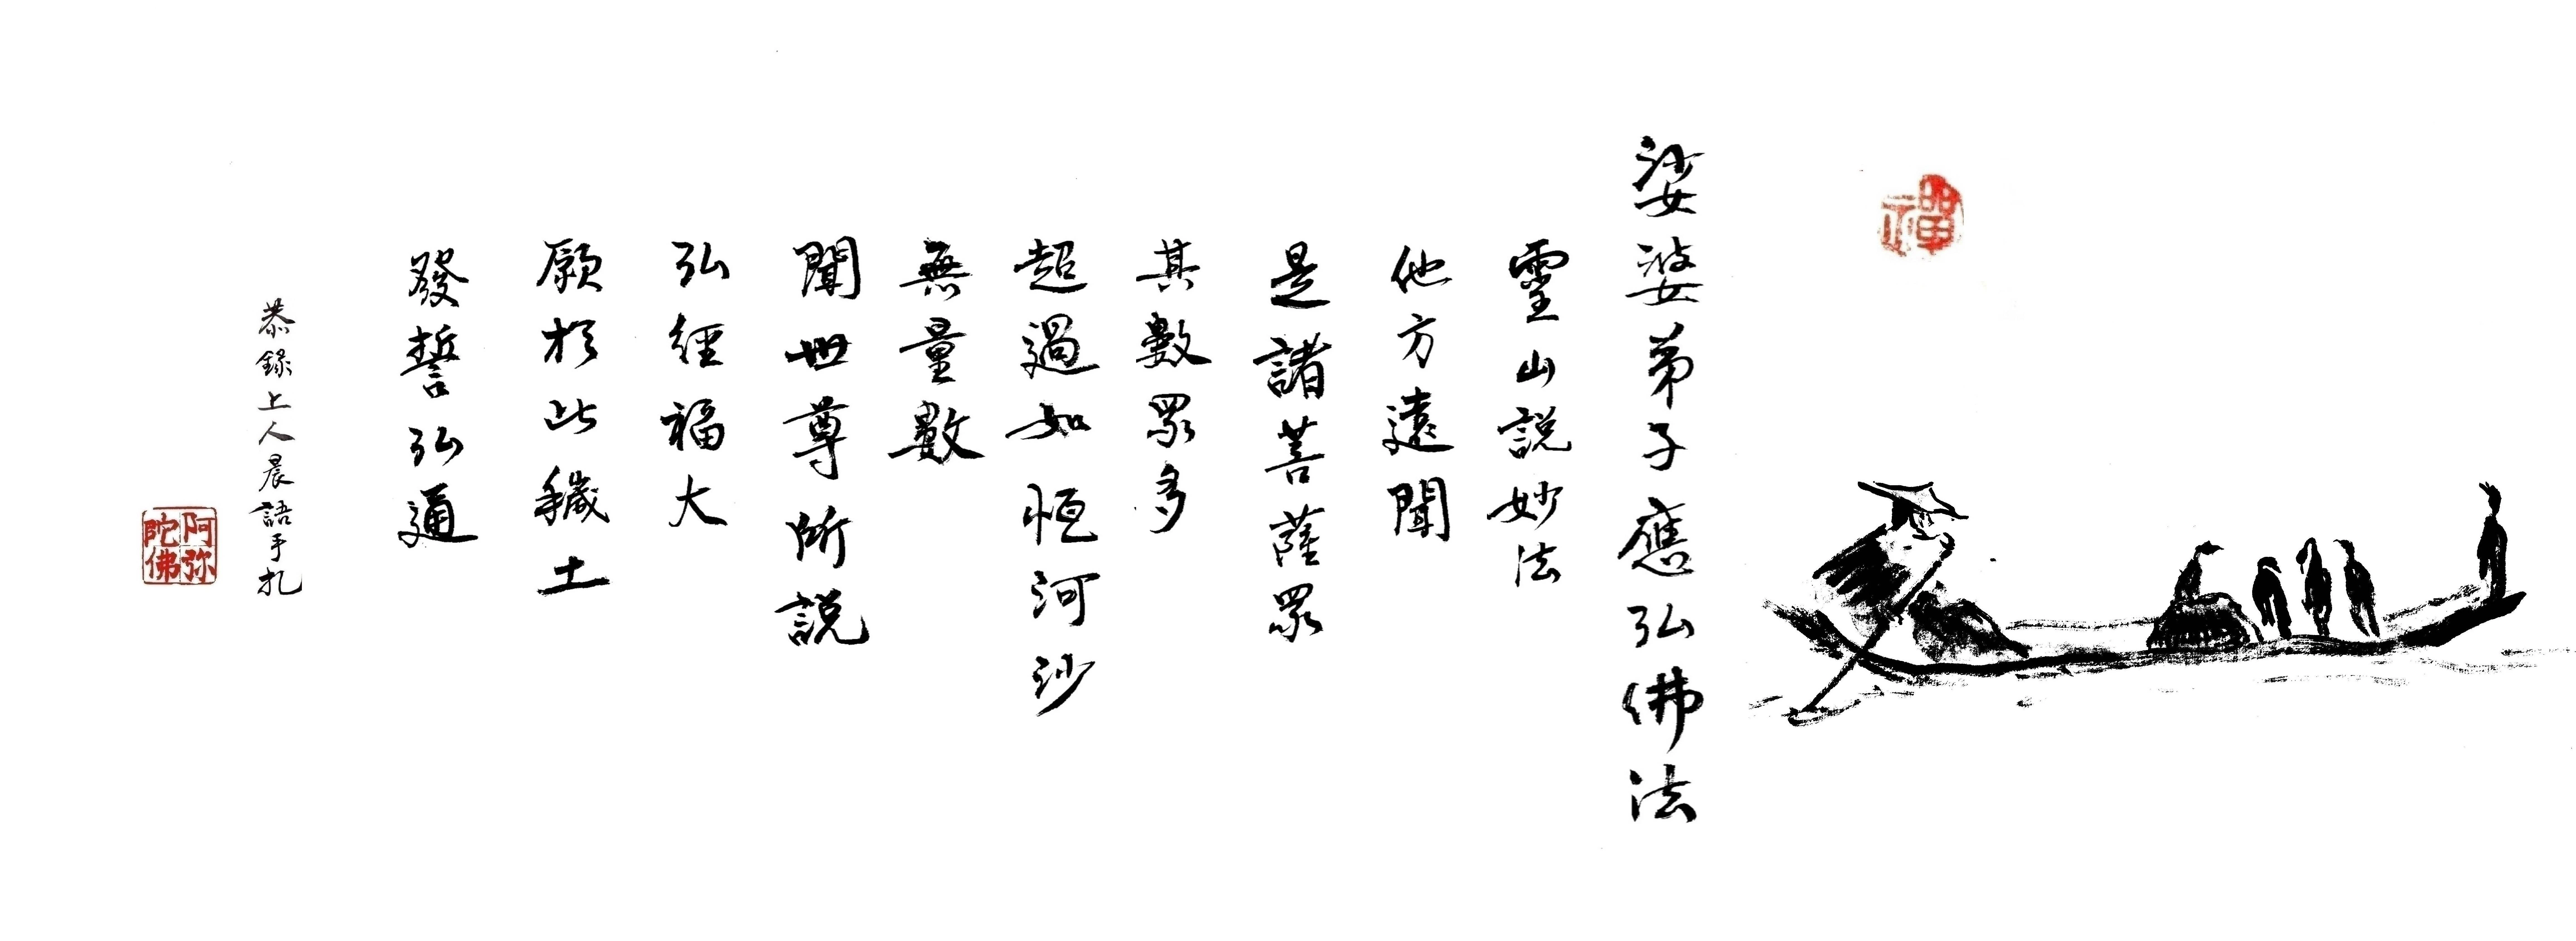 禪
娑婆弟子應弘佛法
靈山說妙法
他方遠聞
是諸菩薩眾
其數眾多
超過如恆河沙
無量數
聞世尊所說
弘經福大
願於此穢土
發誓弘通
恭錄上人晨語手札
阿弥陀佛